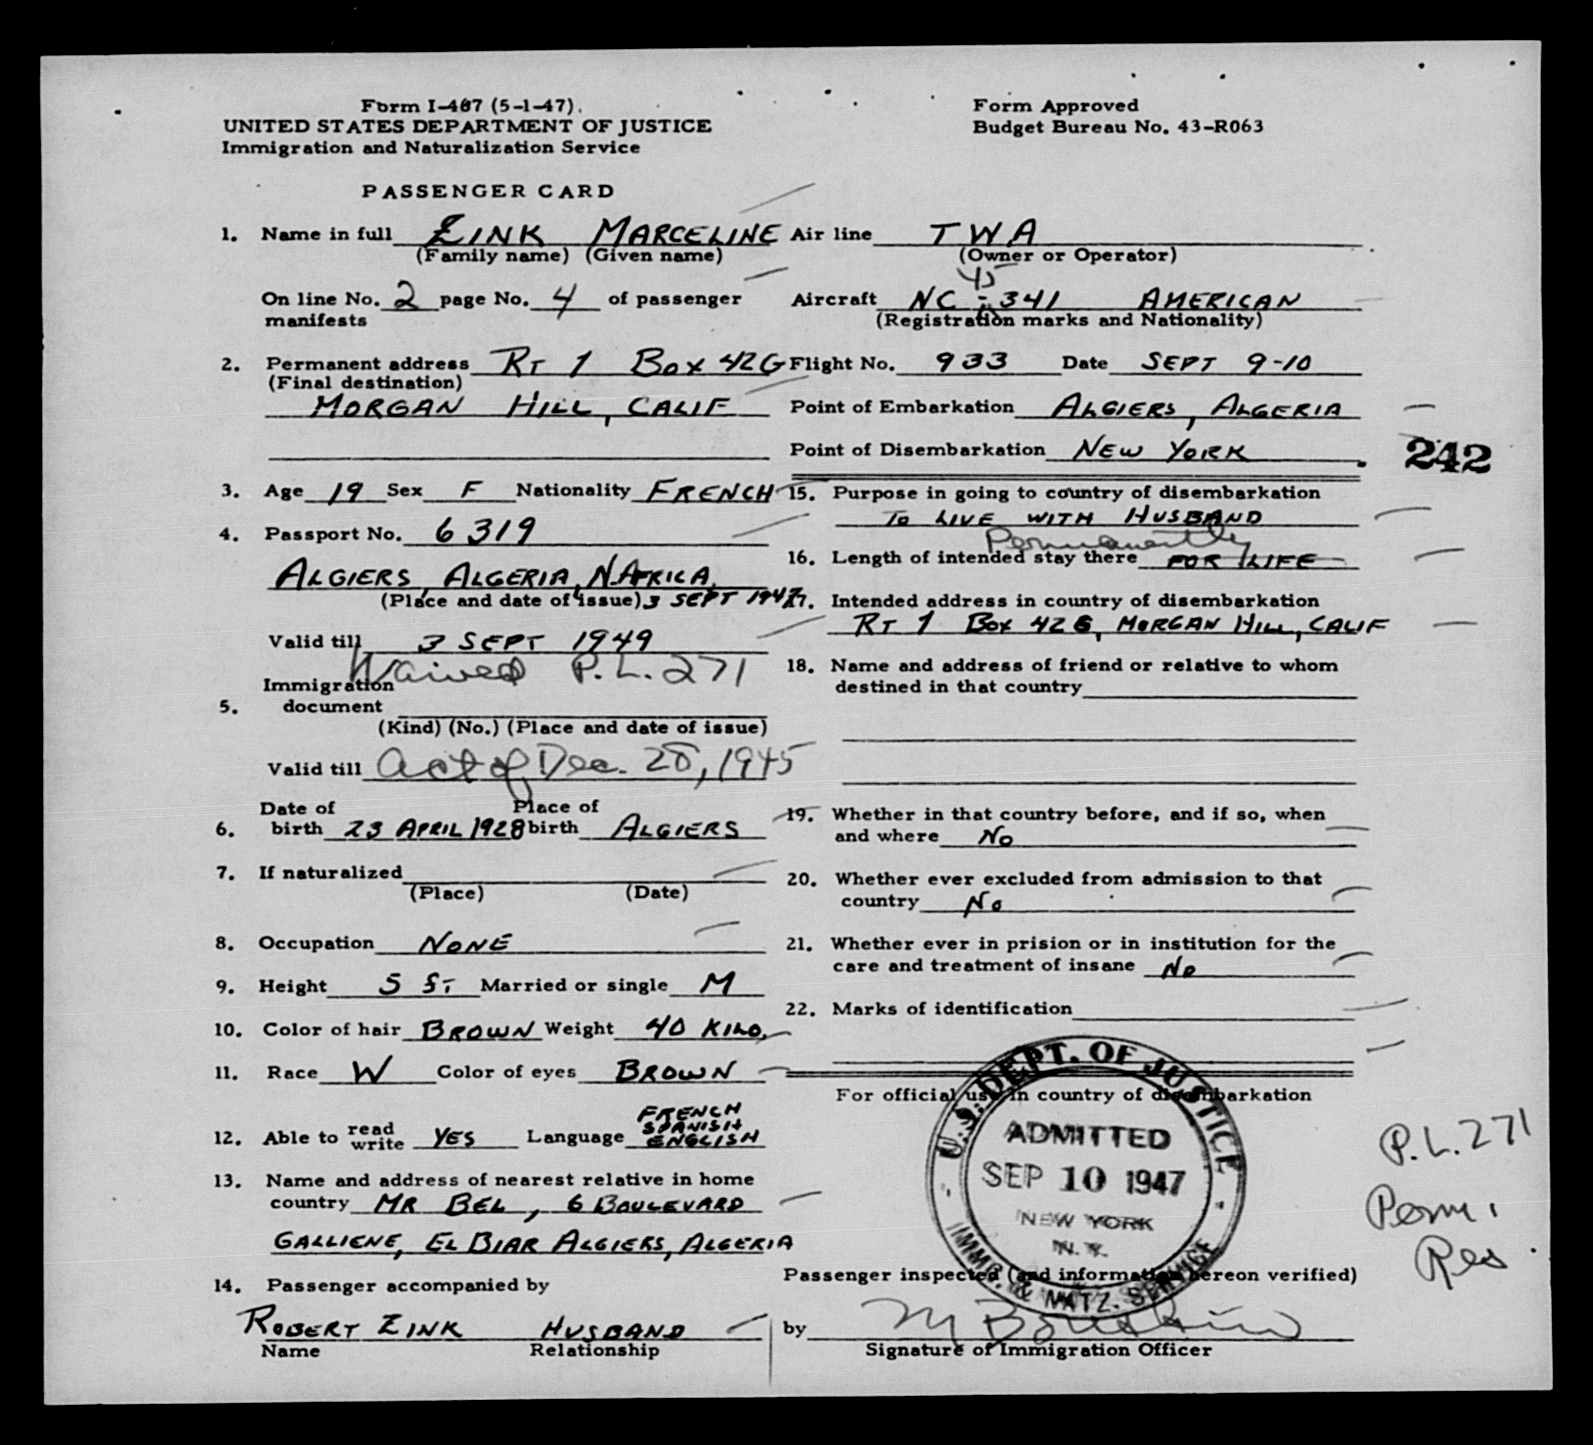 Form I-467 (5-1-47).
UNITED STATES DEPARTMENT OF JUSTICE
Immigration and Naturalization Service
Form Approved
Budget Bureau No. 43-R063
PASSENGER CARD
1. Name in full ZINK MARCELINE
(Family name) (Given name)
On line No. 2 page No. 4 of passenger
manifests
2. Permanent address RT 1 BOX 42G
(Final destination)
MORGAN HILL, CALIF
3. Age 19 Sex F Nationality FRENCH
4. Passport No. 6319
ALGIERS, ALGERIA, N.AFRICA,
(Place and date of issue) 3 SEPT 1947
Valid till 3 SEPT 1949
Waived P.L. 271
Immigration
5. document
(Kind) (No.) (Place and date of issue)
Valid till Act of Dec. 28, 1945
Date of Place of
6. birth 23 APRIL 1928 birth ALGIERS
7. If naturalized
(Place) (Date)
8. Occupation NONE
9. Height 5 FT Married or single M
10. Color of hair BROWN Weight 40 KILO.
11. Race W Color of eyes BROWN
FRENCH
SPANISH
12. Able to read write YES Language ENGLISH
13. Name and address of nearest relative in home
country MR BEL, 6 BOULEVARD
GALLIENE, EL BIAR ALGIERS, ALGERIA
14. Passenger accompanied by
ROBERT ZINK HUSBAND
Name Relationship
Air line TWA
(Owner or Operator)
45
Aircraft NC-341 AMERICAN
(Registration marks and Nationality)
Flight No. 933 Date SEPT 9-10
Point of Embarkation ALGIERS, ALGERIA
Point of Disembarkation NEW YORK
242
15. Purpose in going to country of disembarkation
TO LIVE WITH HUSBAND
Permanently
16. Length of intended stay there FOR LIFE
17. Intended address in country of disembarkation
RT 1 BOX 42G, MORGAN HILL, CALIF
18. Name and address of friend or relative to whom
destined in that country
19. Whether in that country before, and if so, when
and where NO
20. Whether ever excluded from admission to that
country NO
21. Whether ever in prision or in institution for the
care and treatment of insane NO
22. Marks of identification
For official use in country of disembarkation
U.S. DEPT. OF JUSTICE
ADMITTED
SEP 10 1947
NEW YORK
N.Y.
IMMG. & NATZ. SERVICE
P.L. 271
Perm.
Res.
Passenger inspected (and information hereon verified)
by
Signature of Immigration Officer